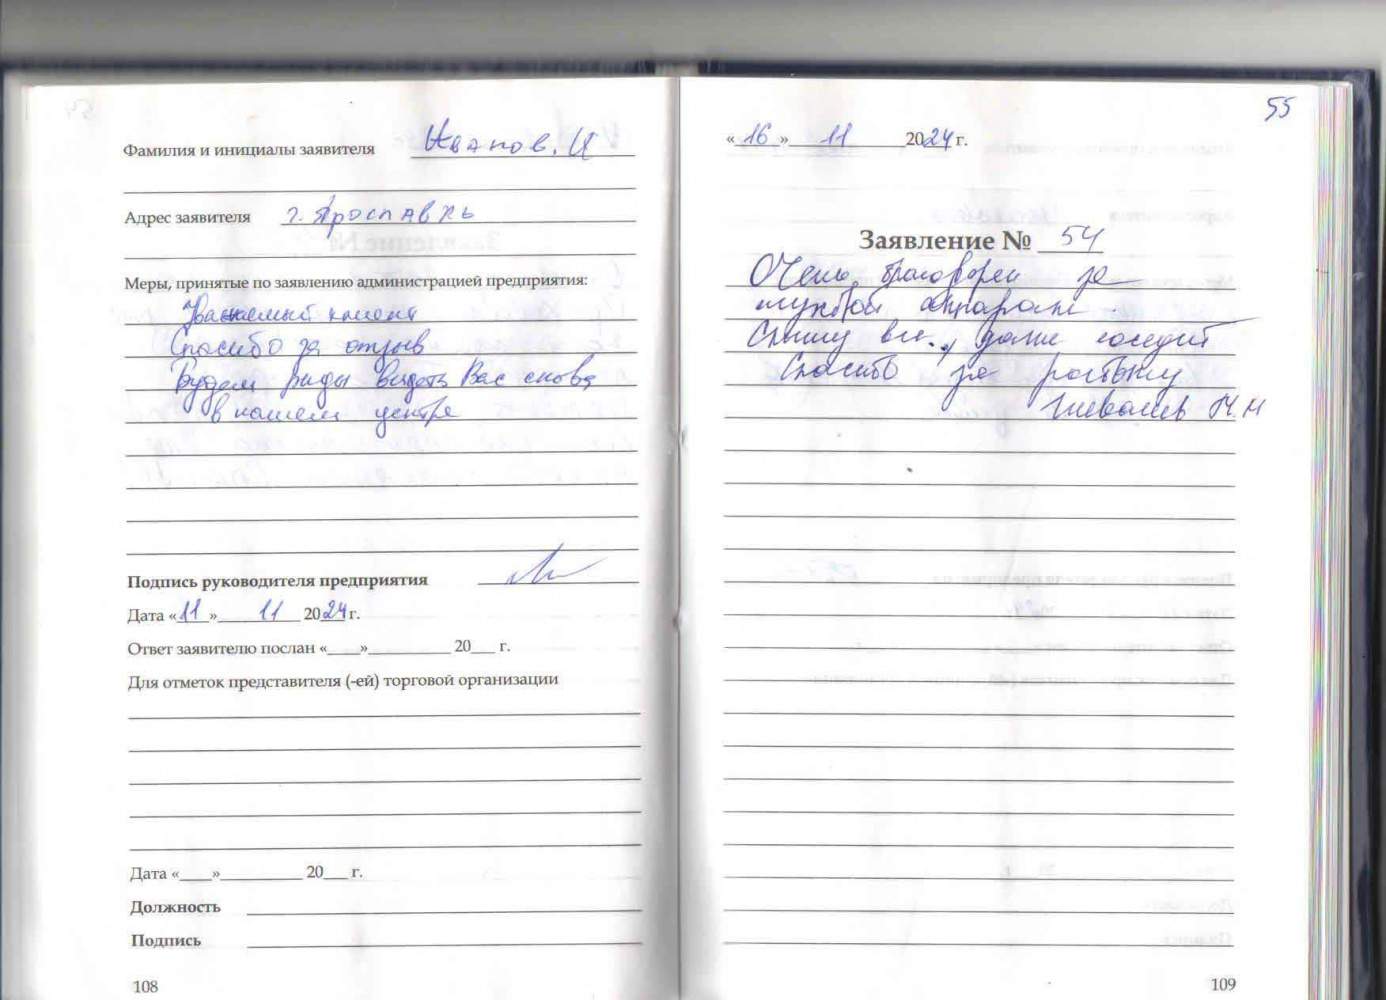 Фамилия и инициалы заявителя Иванов. И
Адрес заявителя г. Ярославль
Меры, принятые по заявлению администрацией предприятия:
Уважаемый клиент
Спасибо за отзыв
Будем рады видеть Вас снова
в нашем центре
Подпись руководителя предприятия
Дата «11» 11 2024 г.
Ответ заявителю послан «___»__________ 20___ г.
Для отметок представителя (-ей) торговой организации
Дата «___»__________ 20___ г.
Должность
Подпись
108
55
«16» 11 2024 г.
Заявление № 54
Очень за
слуховой аппарат.
Слышу все., даже соседей
Спасибо за работу
М.Н
109